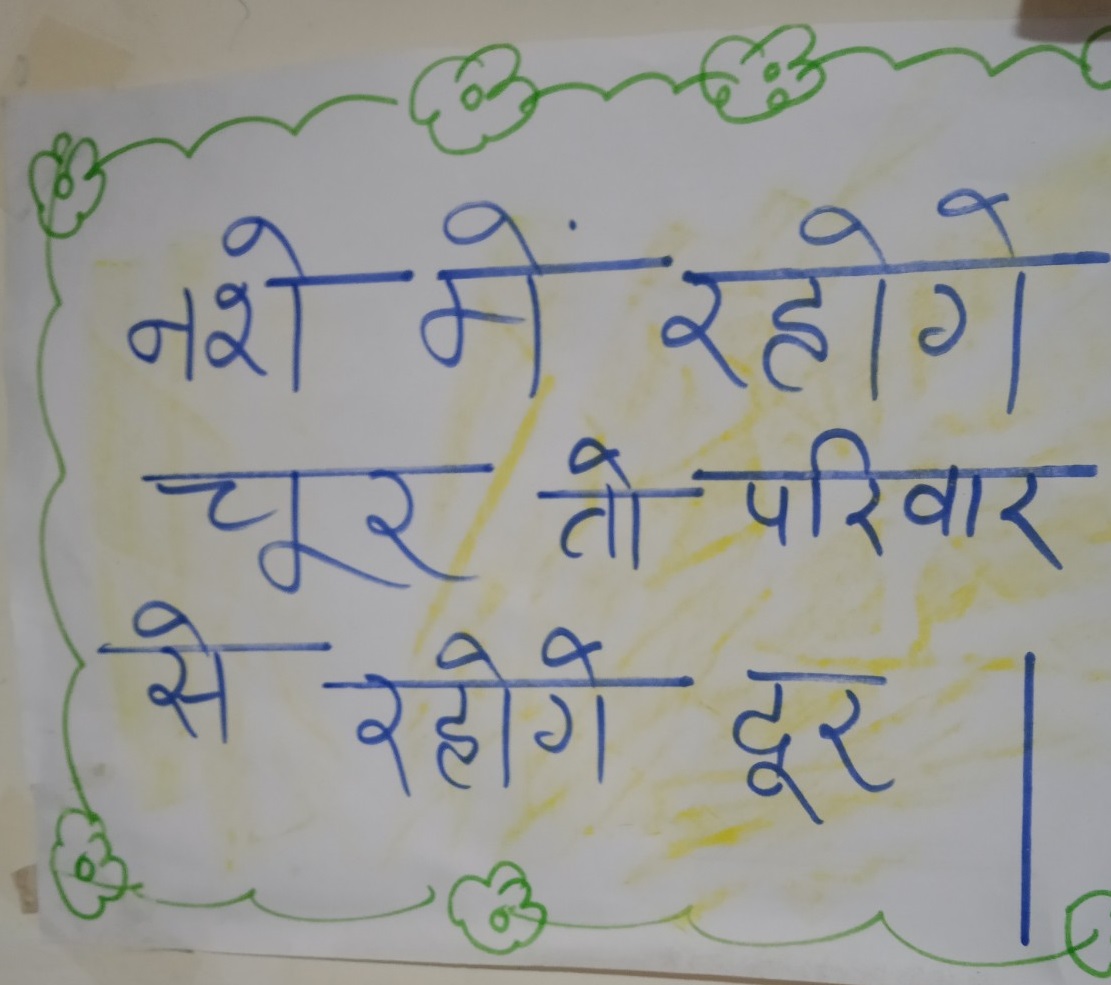 नशे में रहोगे
चूर तो परिवार
से रहोगे दूर ।